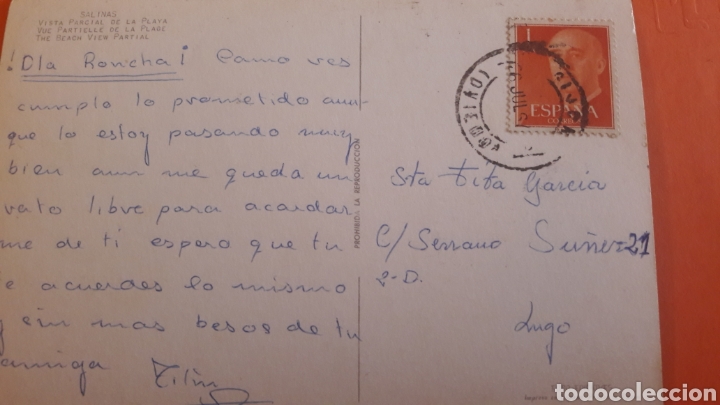 SALINAS
VISTA PARCIAL DE LA PLAYA
VUE PARTIELLE DE LA PLAGE
THE BEACH VIEW PARTIAL
¡Ola Roncha! Como ves
cumplo lo prometido aun-
que lo estoy pasando muy
bien aun me queda un
rato libre para acordar
me de ti espero que tu
te acuerdes lo mismo
y sin mas besos de tu
amiga
PROHIBIDA LA REPRODUCCIÓN
1
ESPAÑA
CORREOS
Sta Tita Garcia
C/ Serrano Suñer-21
2-D.
Lugo
todocoleccion.net